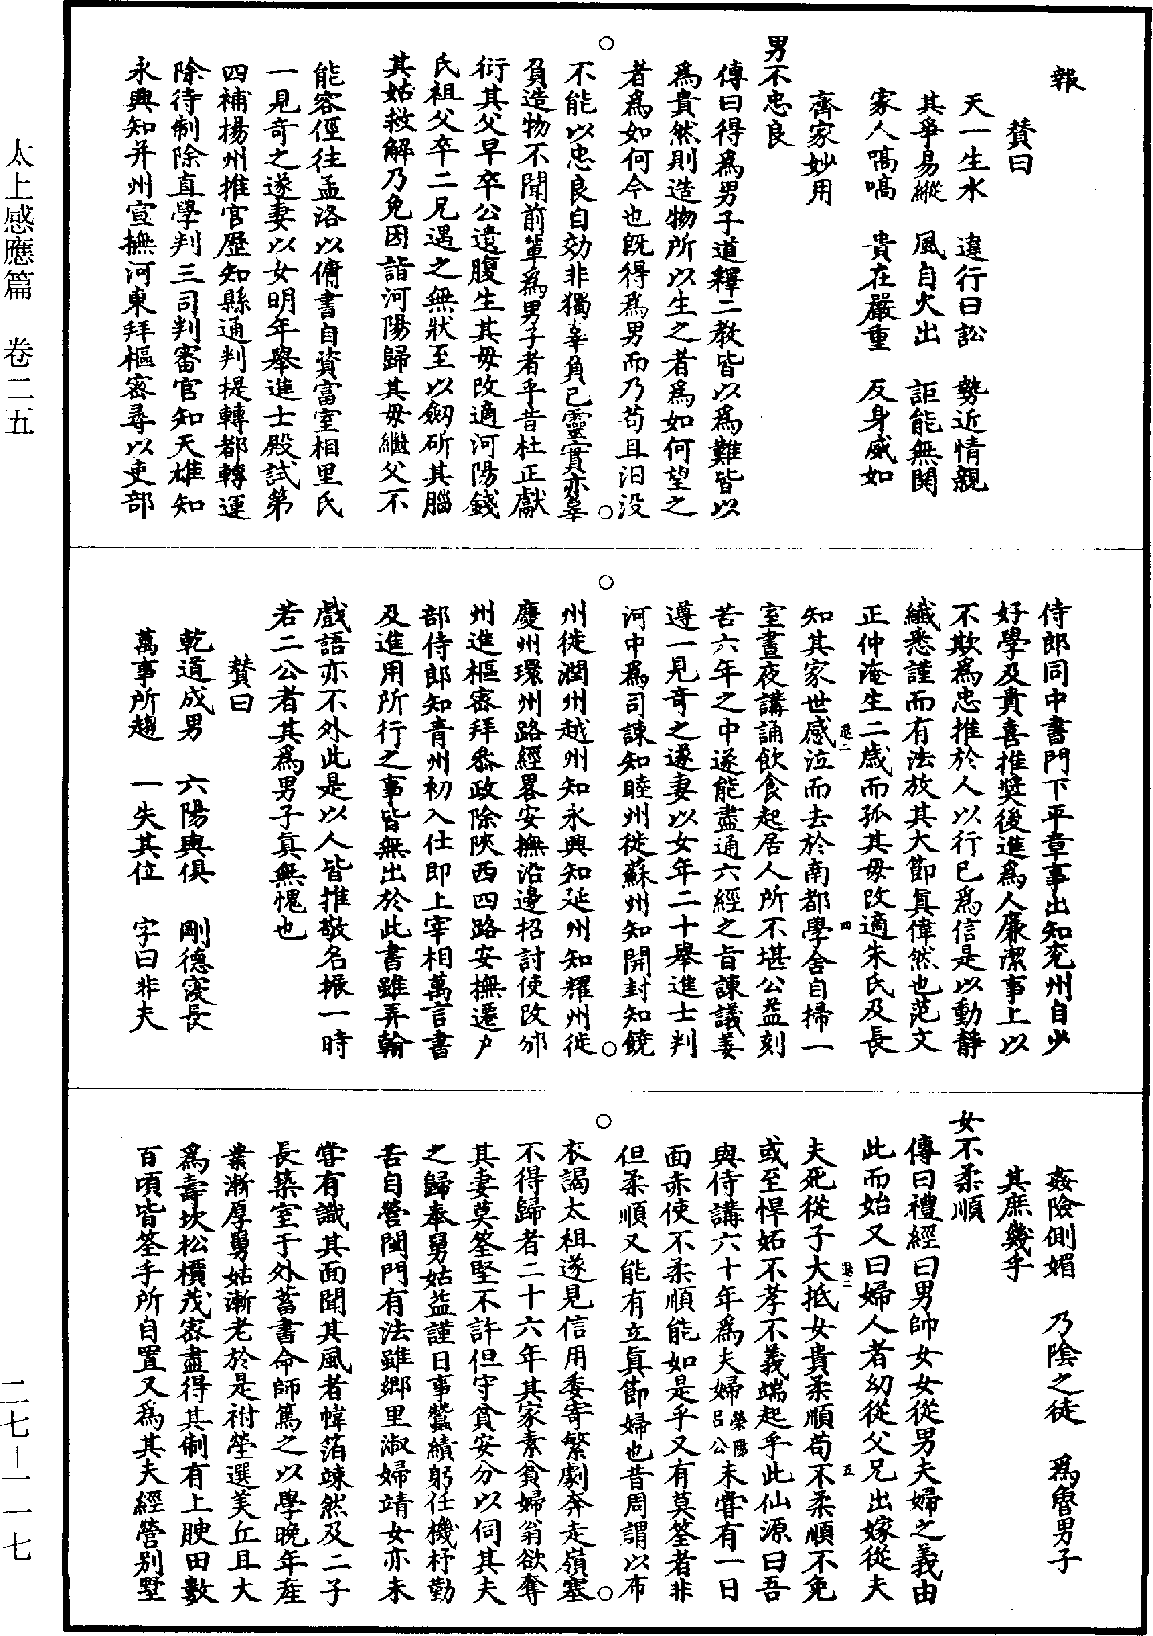 報
賛曰
天一生水　違行曰訟　勢近情親
其爭易縱　風自火出　詎能無閑
家人嗃嗃　貴在嚴重　反身威如
齊家妙用
男不忠良
傳曰得爲男子道釋二教皆以爲難皆以
爲貴然則造物所以生之者爲如何望之
者爲如何今也既得爲男而乃苟且汩没
不能以忠良自効非獨辜負己靈實亦辜
負造物不聞前軰爲男子者乎昔杜正獻
衍其父早卒公遺腹生其毋改適河陽錢
氏祖父卒二兄遇之無狀至以劒斫其腦
其姑救解乃免因詣河陽歸其毋繼父不
能容徑往孟洛以傭書自資富室相里氏
一見奇之遂妻以女明年舉進士殿試第
四補揚州推官歷知縣通判提轉都轉運
除待制除直學判三司判審官知天雄知
永興知并州宣撫河東拜樞宻尋以吏部
侍郎同中書門下平章事出知兖州自少
好學及貴喜推奬後進爲人廉潔事上以
不欺爲忠推於人以行已爲信是以動靜
纎悉謹而有法放其大節眞偉然也范文
正仲淹生二歳而孤其毋改適朱氏及長
知其家世感泣而去於南都學舍自掃一
室晝夜講誦飲食起居人所不堪公益刻
苦六年之中遂能盡通六經之旨諫議姜
遵一見奇之遂妻以女年二十舉進士判
河中爲司諫知睦州徙蘇州知開封知饒
州徙潤州越州知永興知延州知耀州徙
慶州環州路經畧安撫沿邊招討使改邠
州進樞宻拜叅政除陜西四路安撫遷户
部侍郎知青州初入仕即上宰相萬言書
及進用所行之事皆無出於此書雖弄翰
戲語亦不外此是以人皆推敬名振一時
若二公者其爲男子眞無愧也
賛曰
乾道成男　六陽與俱　剛德寖長
萬事所趨　一失其位　字曰非夫
姦險側媚　乃陰之徒　爲魯男子
其庶幾乎
女不柔順
傳曰禮經曰男帥女女從男夫婦之義由
此而始又曰婦人者幼從父兄出嫁從夫
夫死從子大抵女貴柔順苟不柔順不免
或至悍妬不孝不義端起乎此仙源曰吾
與侍講六十年爲夫婦滎陽吕公未甞有一日
面赤使不柔順能如是乎又有莫筌者非
但柔順又能有立眞節婦也昔周謂以布
衣謁太祖遂見信用委寄繁劇奔走嶺塞
不得歸者二十六年其家素貧婦翁欲奪
其妻莫筌堅不許但守貧安分以伺其夫
之歸奉舅姑益謹日事蠶績躬任機杼勤
苦自營閨門有法雖郷里淑婦靖女亦未
甞有識其面聞其風者幃箔竦然及二子
長築室于外蓄書命師篤之以學晩年産
業漸厚舅姑漸老於是祔塋選美丘且大
爲壽坎松檟茂宻盡得其制有上腴田數
百頃皆筌手所自置又爲其夫經營别墅
太上感應篇　卷二五
二七－一一七